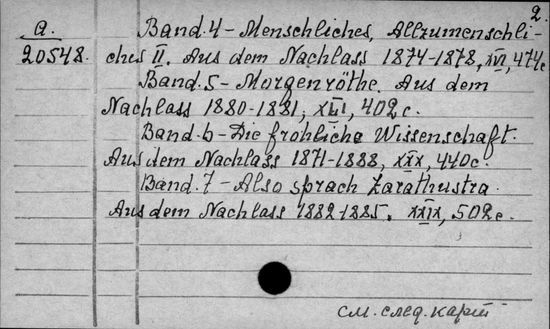 2.
A.
20548.
Band.4 - Menschliches, Allzumenschli-
ches II. Aus dem Nachlass 1874-1878, XVI, 474c
Band.5 - Morgenröthe. Aus dem
Nachlass 1880-1881, XLI, 402c.
Band.6 - Die fröhliche Wissenschaft.
Aus dem Nachlass 1871-1888, XXX, 440c.
Band.7 - Also sprach Zarathustra.
Aus dem Nachlass 1882-1885. XXIX, 502c.
см. след. карт